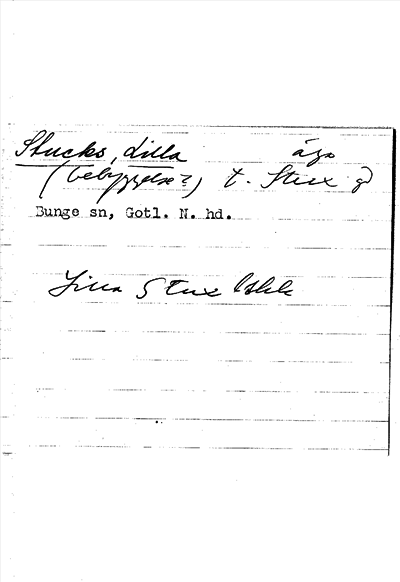 Stucks, Lilla äga
(bebyggelse?) t. Stux gd
Bunge sn, Gotl. N. hd.
Lilla Stux